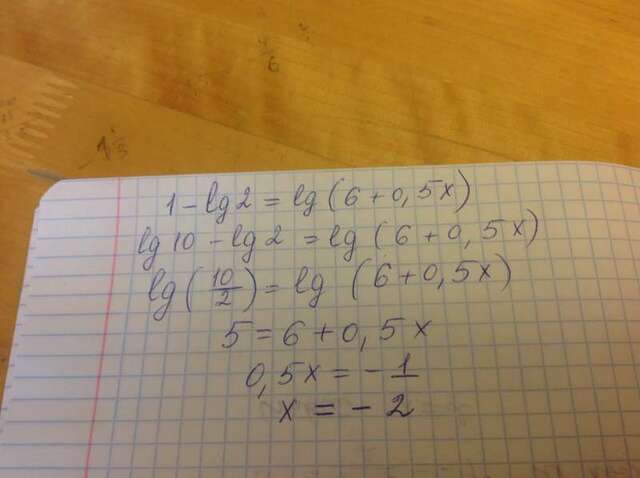 1 - lg 2 = lg (6 + 0,5x)
lg 10 - lg 2 = lg (6 + 0,5x)
lg (10/2) = lg (6 + 0,5x)
5 = 6 + 0,5x
0,5x = - 1
x = - 2